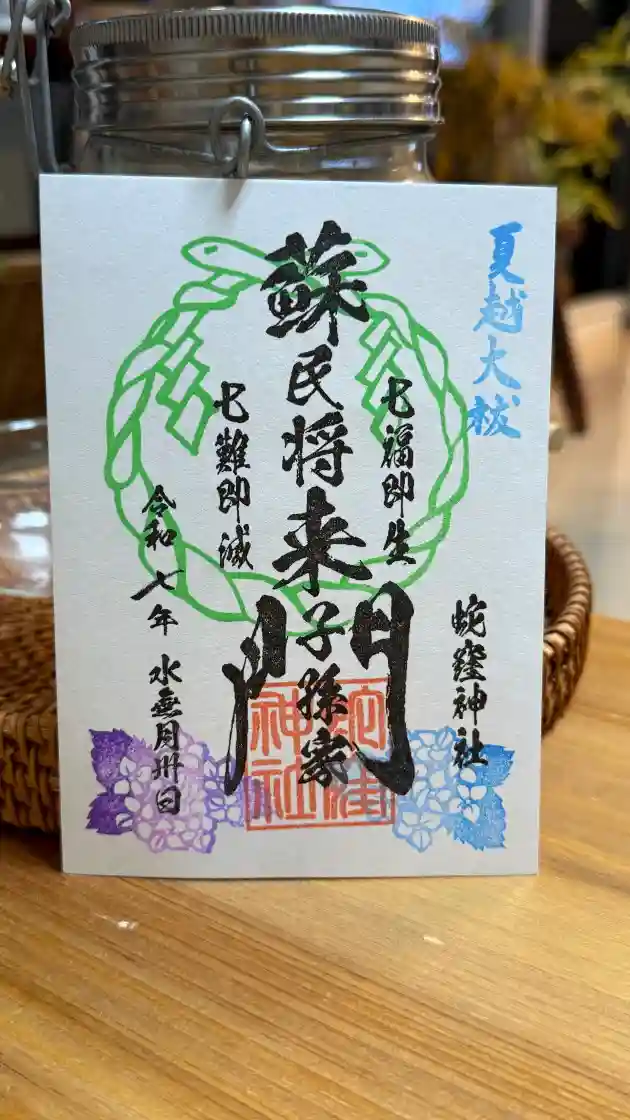 夏越大祓
七福即生
蘇民将来子孫家門
七難即滅
蛇窪神社
令和七年水無月卅日
蛇窪
神社